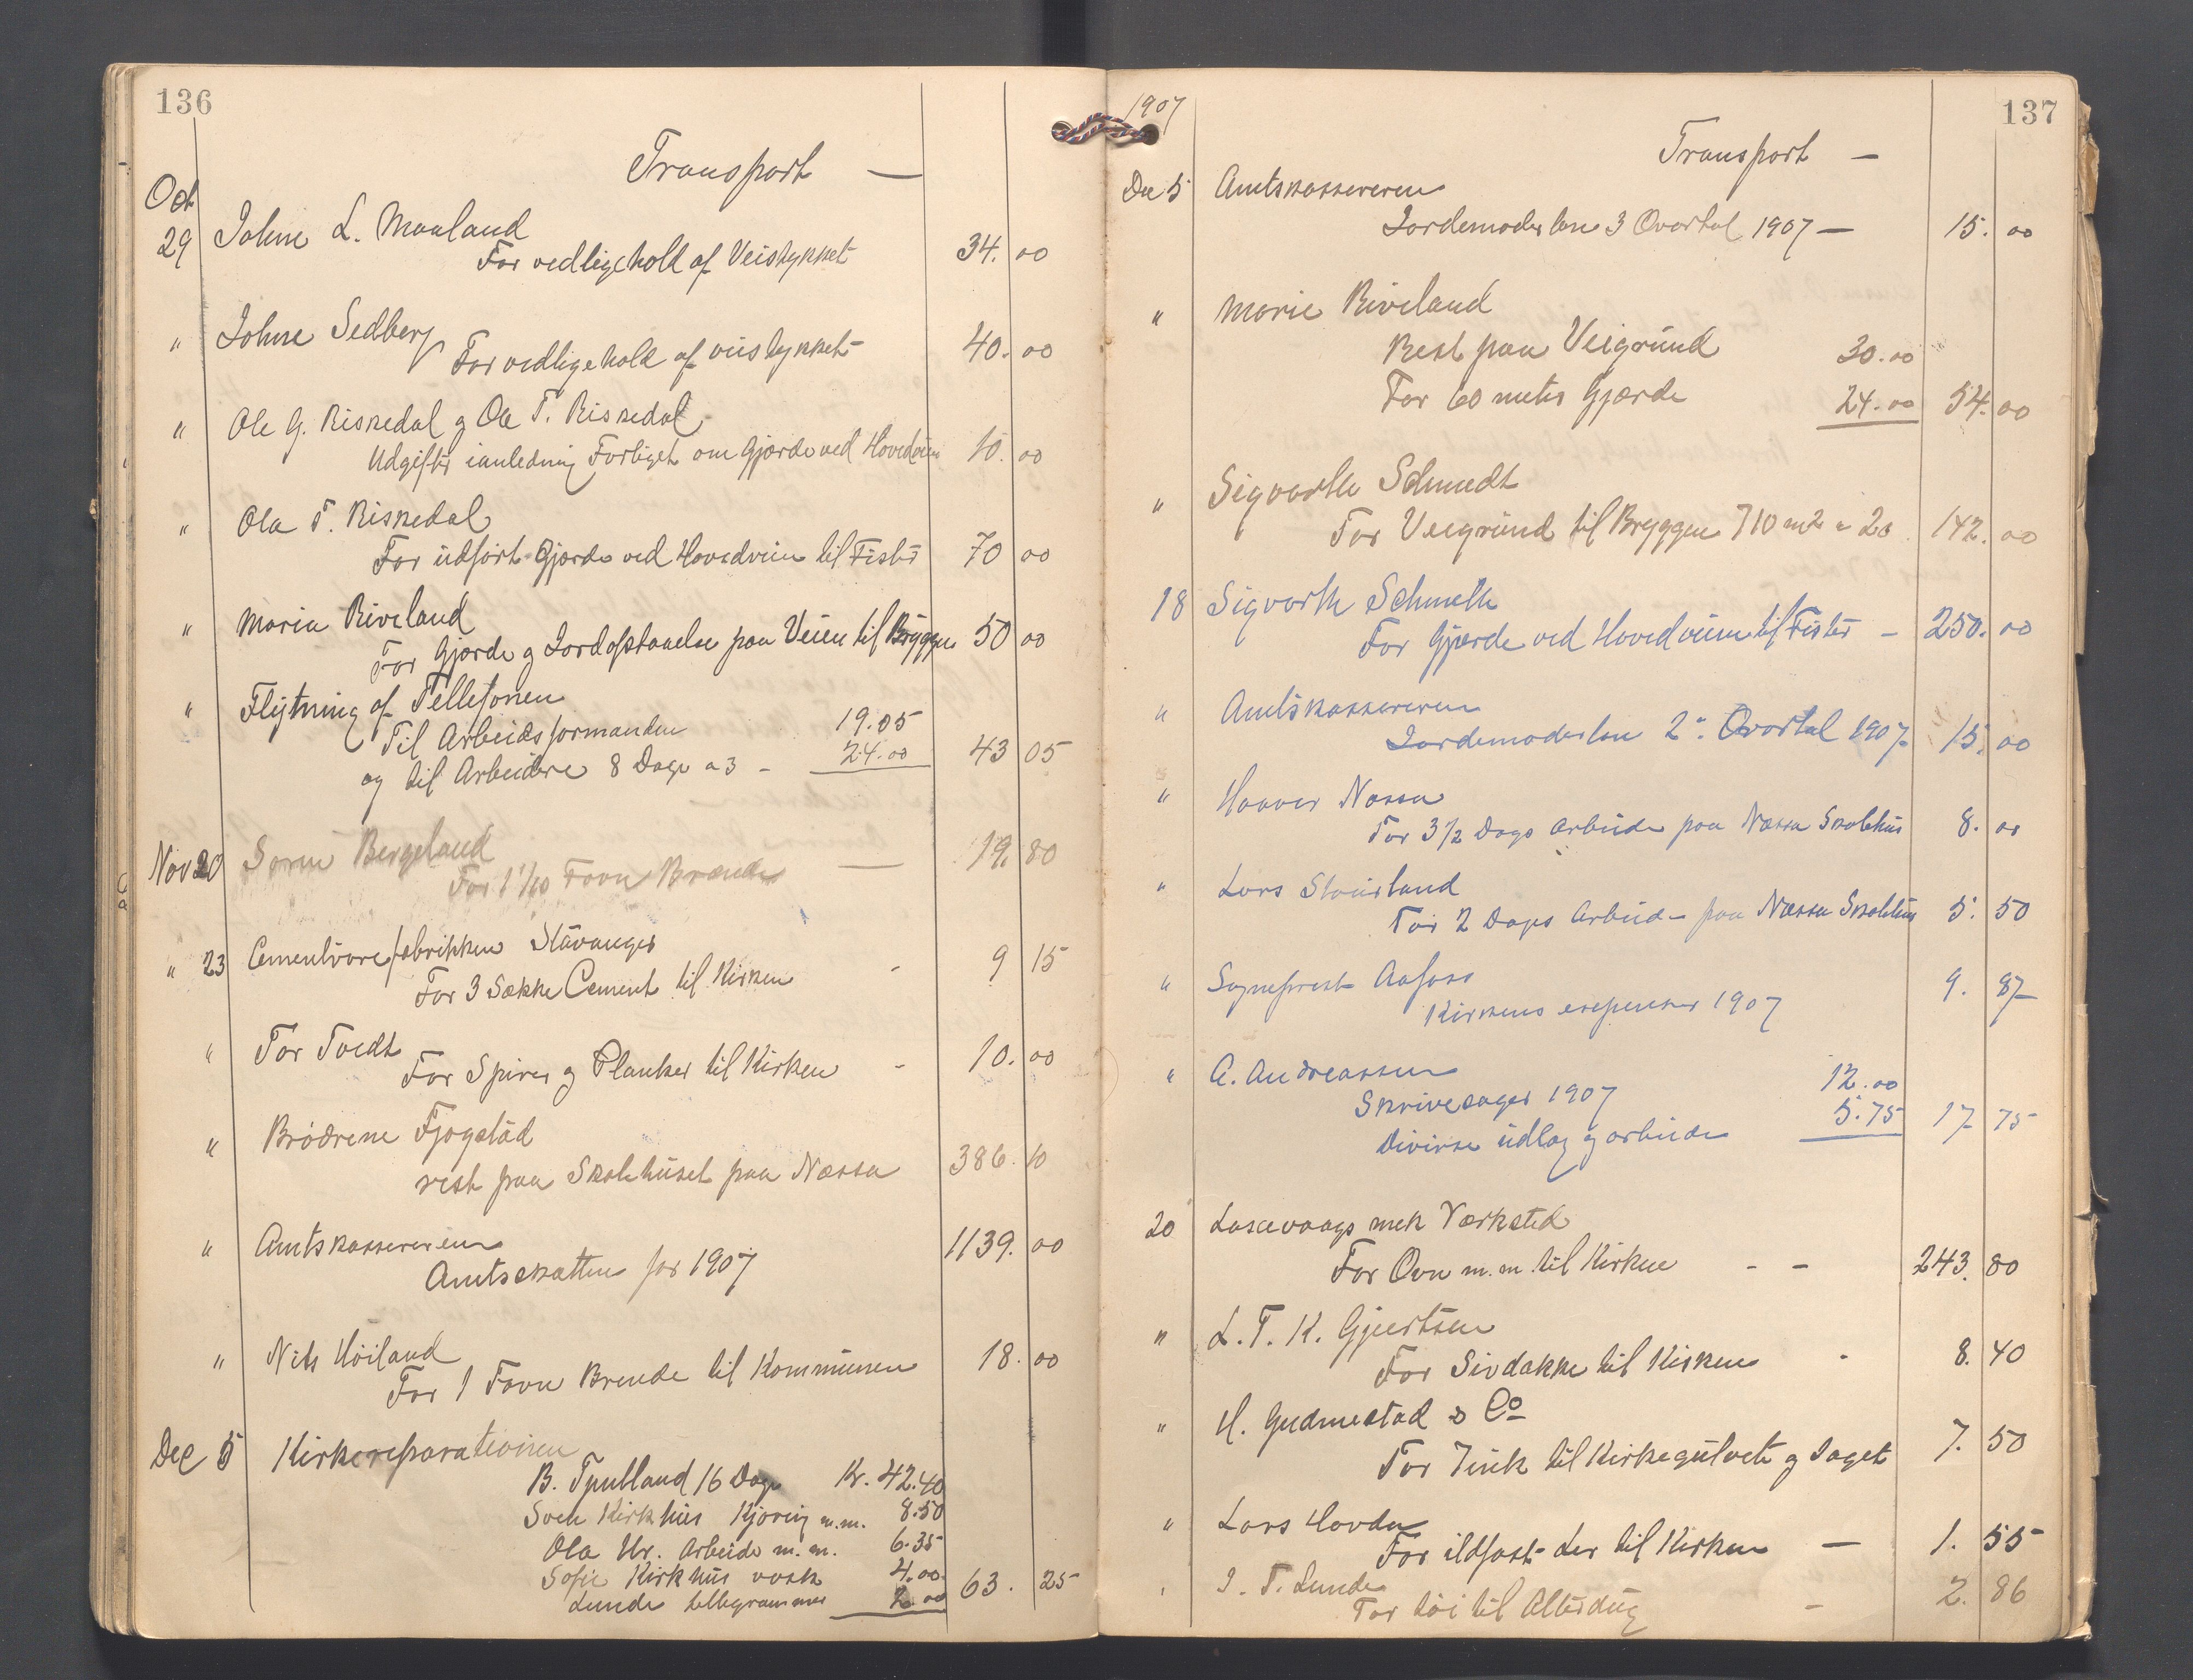 136
Transport —
Oct
29 Johne L. Maaland
For vedligehold af Veistykket 34. 00
" Johne Sedberg
For vedligehold af veistykket 40. 00
" Ole G. Riskedal og Ole T. Riskedal
Udgifter ianledning Forliget om Gjærde ved Hovedveien 10. 00
" Ola T. Riskedal
For udført Gjærde ved Hovedveien til Fister 70 00
" Maria Riveland
For Gjærde og Jordafstaaelse paa Veien til Bryggen 50 00
" Flytning af Tellefonen
Til Arbeidsformanden 19.05
og til Arbeidere 8 Dage a 3 - 24.00 43 05
Nov 20 Søren Bergeland
For 1 1/10 Favn Brænde — 19. 80
" 23 Cementvarefabrikken Stavanger
For 3 Sække Cement til Kirken - 9 15
" Tor Tvedt
For Spirer og Planker til Kirken - 10. 00
" Brødrene Fjogstad
rest paa Skolehuset paa Næssa 386. 10
" Amtskassereren
Amtsskatten for 1907 1139. 00
" Nils Høiland
For 1 Favn Brende til Kommunen 18. 00
Dec 5 Kirkereparationen
B. Tjentland 16 Dage Kr. 42.40
Sven Kirkhus Kjøring m.m. 8.50
Ola Hr. Arbeide m.m. 6.35
Sofie Kirkhus vask 4.00
Lunde tellegrammer 2.00 63. 25
1907
137
Transport —
Dec 5 Amtskassereren
Jordemoderløn 3 Qvartal 1907 — 15. 00
" Marie Riveland
Rest paa Veigrund 30.00
For 60 meter Gjærde 24.00 54. 00
" Sigvarth Schmedt
For Veigrund til Bryggen 710 m2 a 20 142. 00
18 Sigvarth Schmeth
For Gjærde ved Hovedveien til Fister - 250. 00
" Amtskassereren
Jordemoderløn 2 Qvartal 1907 15. 00
" Haaver Næssa
For 3 1/2 Dags Arbeide paa Næssa Skolehus 8. 00
" Lars
For 2 Dages Arbeide paa Næssa Skolehus 5. 50
" Sogneprest Aafoss
Kirkens expenser 1907 9. 87
" A. Andreassen
Skrivesager 1907 12.00
Divirse udlæg og arbeide 5.75 17 75
20 Laxevaags mek Værksted
For Ovn m.m. til Kirken - - 243. 80
" L. T. K. Gjertsen
For Sivdække til Kirken - 8. 40
" H. Gudmestad & Co
For Zink til Kirkegulvet og Taget 7. 50
" Lars Hovda
For ildfast Ler til Kirken — 1. 55
" J. T. Lunde
For tøi til Alterdug - 2. 86